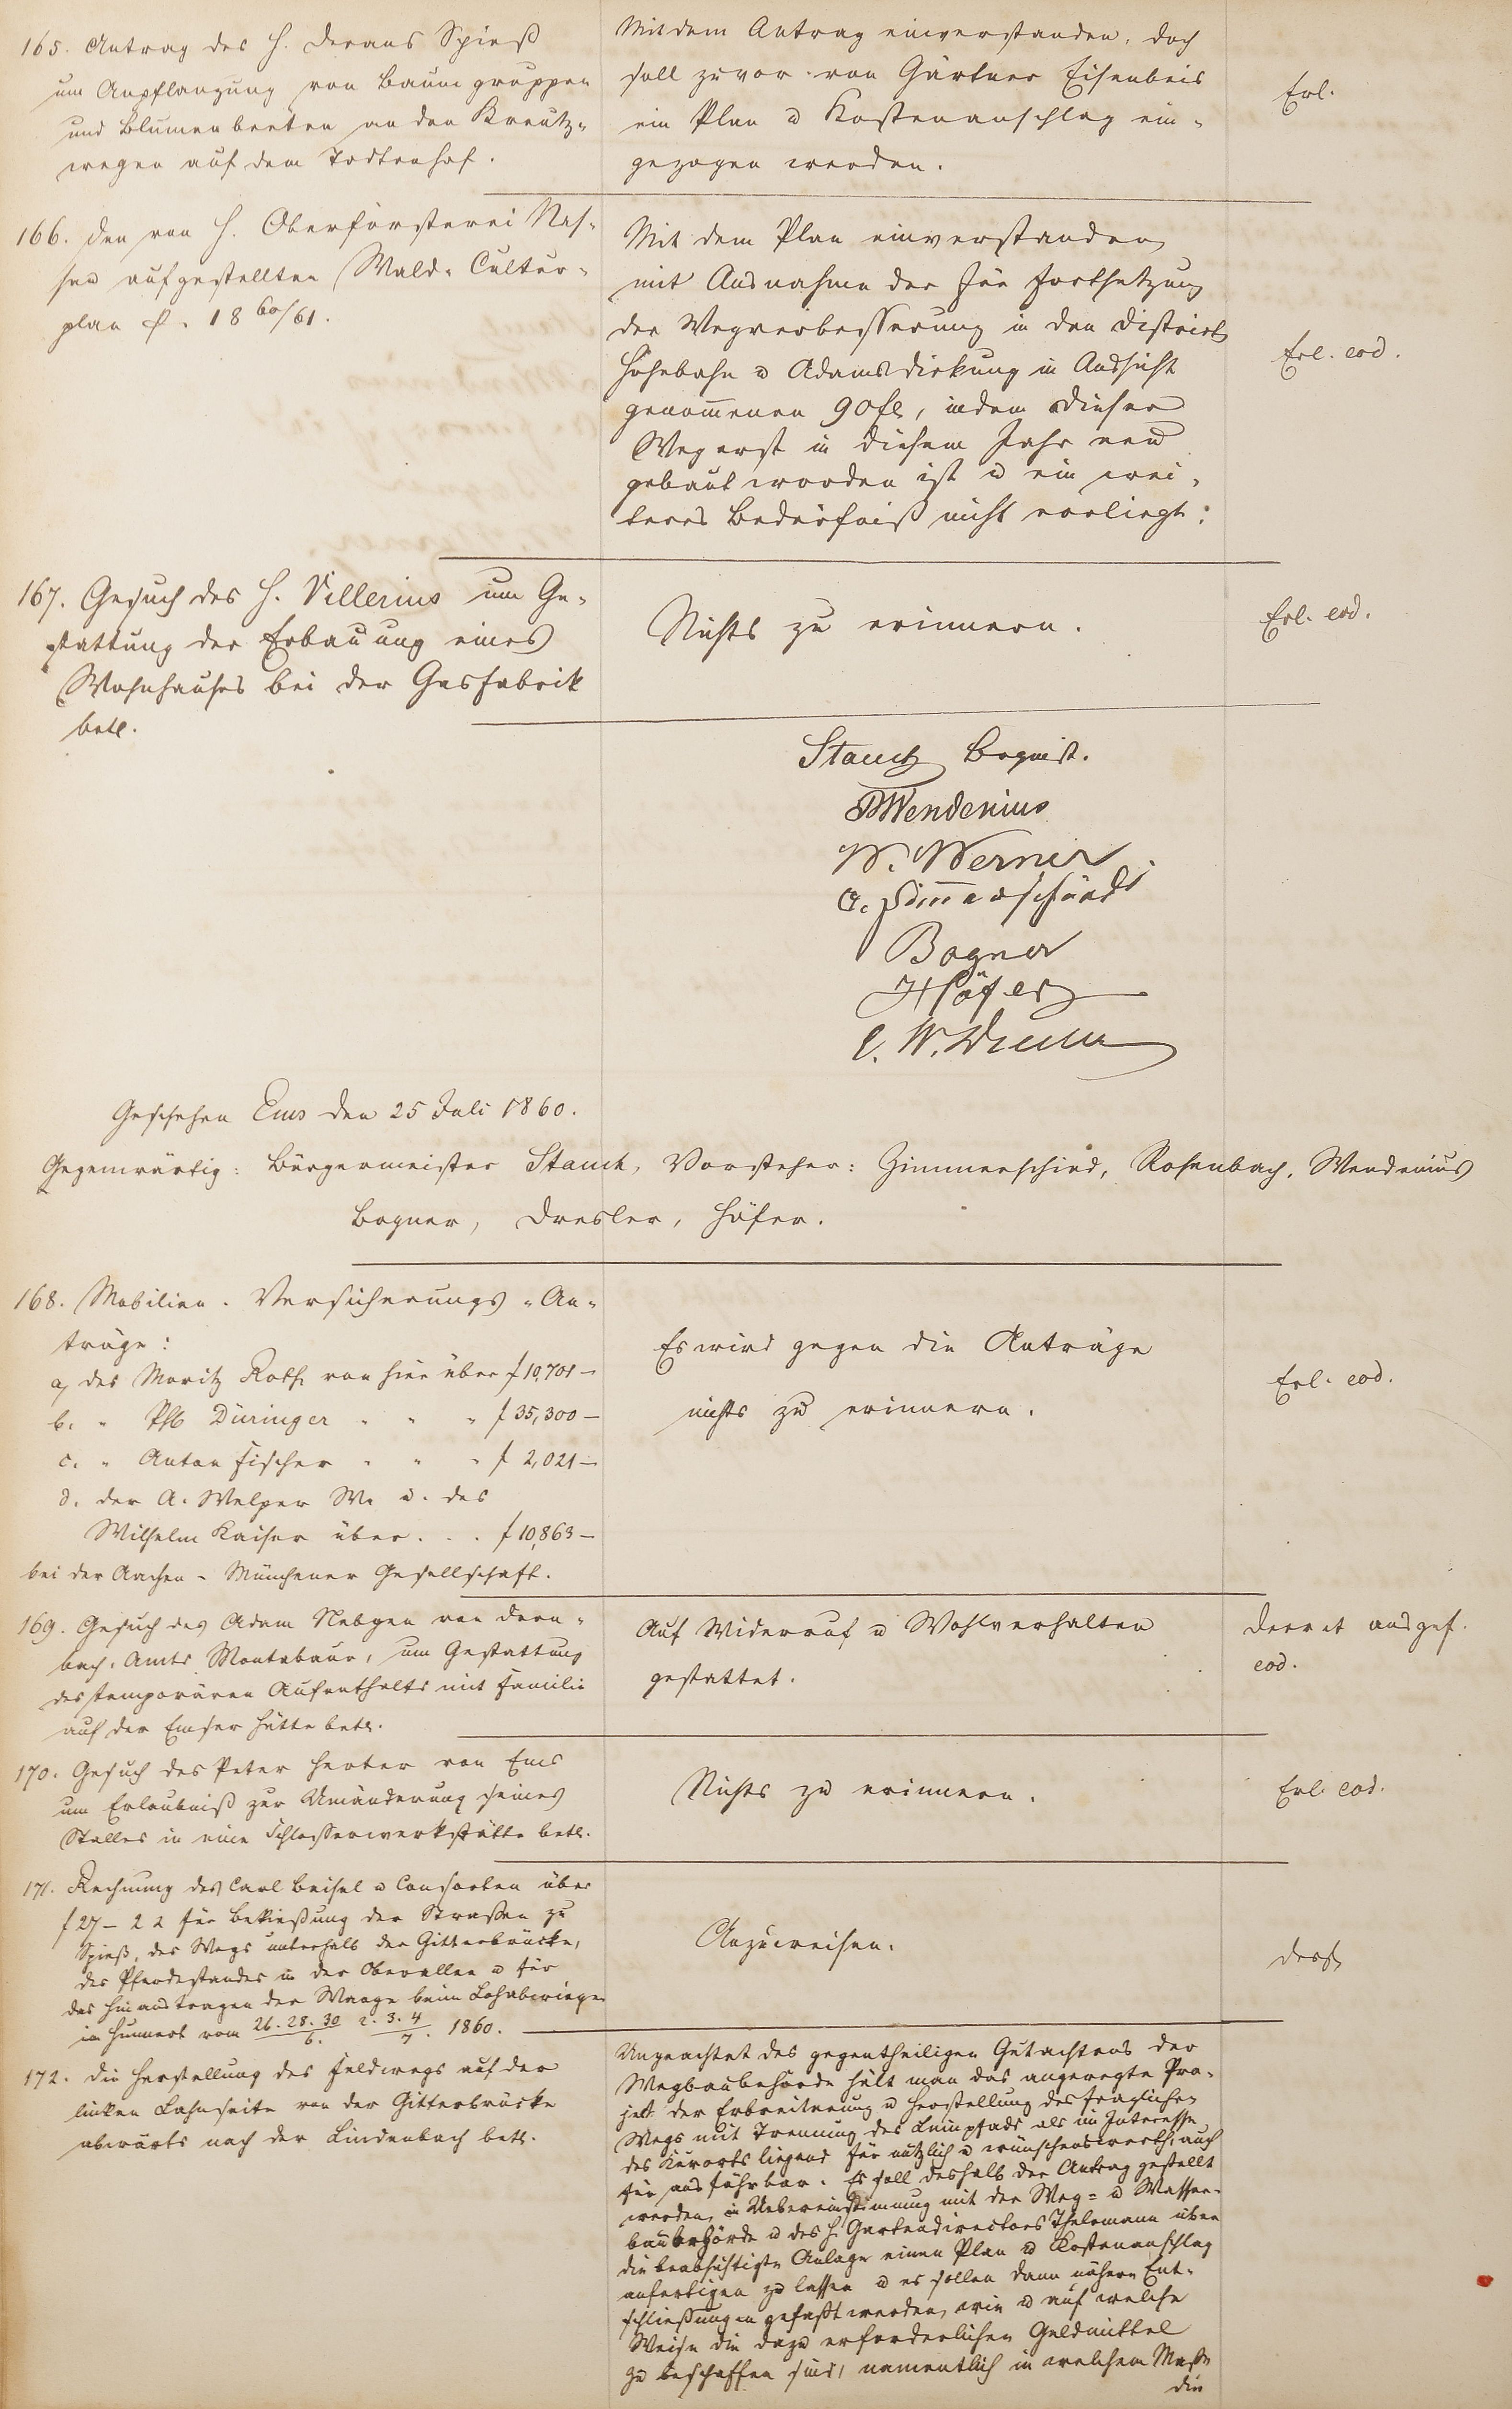 165. Antrag des H. Decans Spieß
um Anpflanzung von Baumgruppen
und Blumenbeeten an den Kreutz-
wegen auf dem Todtenhof.
Mit dem Antrag einverstanden, doch
soll zuvor von Gärtner Eisenbeis
ein Plan u Kostenanschlag ein-
gezogen werden.
Erl.
166. Den von H. Oberförsterei Nas-
sau aufgestellten Wald-Cultur-
plan p. 1860/61.
Mit dem Plan einverstanden
mit Ausnahme der für Fortsetzung
der Wegverbesserung in den District
Höhebahn u Adams in Aussicht
genommenen 90 fl, indem dieser
Weg erst in diesem Jahr neu
gebaut worden ist u ein wei-
teres Bedürfniß nicht vorliegt.
Erl. eod.
167. Gesuch des H. Villerius um Ge-
stattung der Erbauung eines
Wohnhauses bei der Gasfabrik
betr.
Nichts zu erinnern.
Erl. eod.
Stauch Brgmst.
Wendenius
W. Werner
Bogner
Höfer
Geschehen Ems den 25 Juli 1860.
Gegenwärtig: Bürgermeister Stauch, Vorsteher: Zimmerschied, Rosenbach, Wendenius
Bogner, Dresler, Höfer.
168. Mobilien-Versicherungs-An-
träge:
a, des Moritz Roth von hier über f 10,701 –
b. " Ph Düringer " " " f 35,300 –
c. " Anton Fischer " " " f 2,021 –
d. der A. Welper We u. des
Wilhelm Kaiser über . . . f 10,863 –
bei der Aachen-Münchener Gesellschaft.
Es wird gegen die Anträge
nichts zu erinnern.
Erl. eod.
169. Gesuch des Adam Nebgen von Dern-
bach, Amts Montabaur, um Gestattung
des temporären Aufenthalts mit Familie
auf der Emser Hütte betr.
Auf Widerruf u Wohlverhalten
gestattet.
Decret ausgef.
eod.
170. Gesuch des Peter Herber von Ems
um Erlaubniß zur Umänderung seines
Stalles in eine Schlosserwerkstätte betr.
Nichts zu erinnern.
Erl. eod.
171. Rechnung des Carl Beisel u Consorten über
f 27 – 22 für Bekießung der Straßen zu
Spieß, des Wegs unterhalb der Gitterbrücke,
des Pferdestandes in der Oberallee u für
das Hinaustragen der Waage beim Lohabwiegen
im Hunnert vom 26. 28. 30/6. 2. 3. 4/7. 1860.
Anzuweisen.
172. Die Herstellung des Feldwegs auf der
linken Lahnseite von der Gitterbrücke
abwärts nach der Lindenbach betr.
Ungeachtet des gegentheiligen Gutachtens der
Wegbaubehörde hält man das angeregte Pro-
jekt der Erbreiterung u Herstellung des fraglichen
Wegs mit Trennung des Leinpfads als im Interesse
des Kurorts liegend für nützlich u wünschenswerth, auch
für ausführbar. Es soll deshalb der Antrag gestellt
werden, in Uebereinstimmung mit der Weg- u Wasser-
baubehörde u des H. Gartendirectors Thelemann über
die beabsichtigte Anlage einen Plan u Kostenanschlag
anfertigen zu lassen u es sollen dann nähere Ent-
schließungen gefaßt werden, wie u auf welche
Weise die dazu erforderlichen Geldmittel
zu beschaffen sind, namentlich in welchem Maße
die